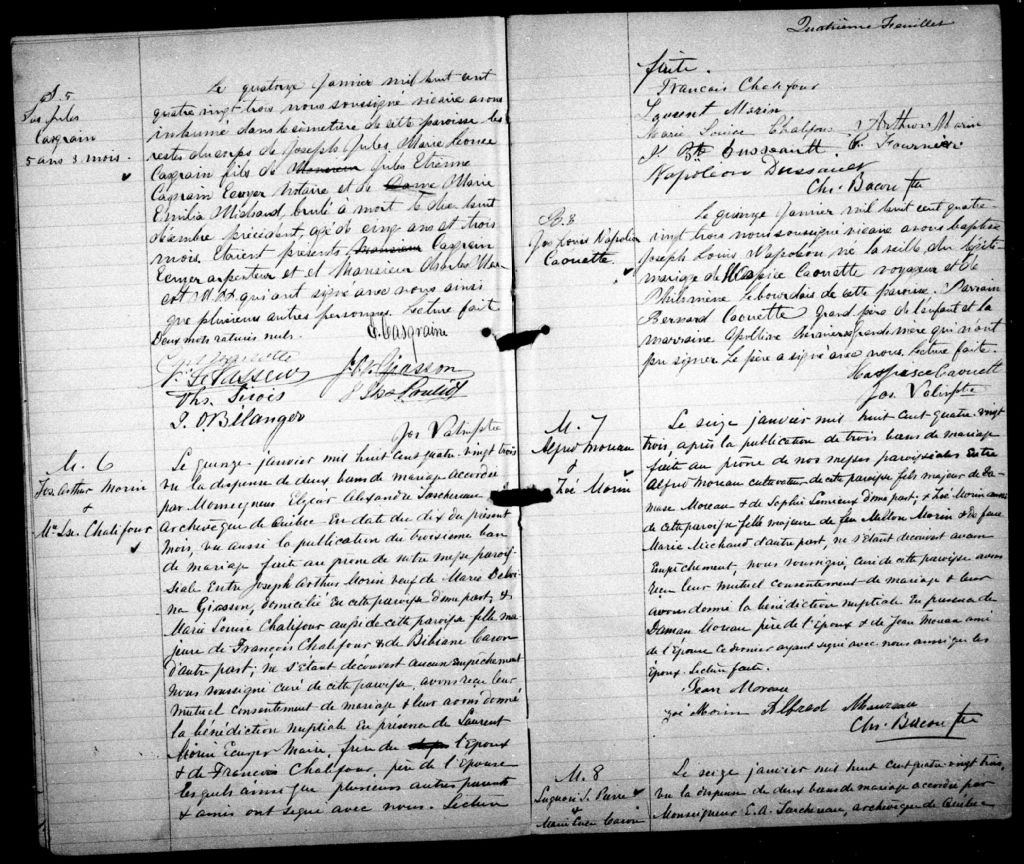 S. 5
Jos Jules
Casgrain
5 ans 3 mois.
Le quatorze Janvier mil huit cent
quatre vingt trois nous soussigné vicaire avons
inhumé dans le cimetière de cette paroisse les
restes du corps de Joseph Jules Marie Leonce
Casgrain fils de Monsieur Jules Etienne
Casgrain Ecuyer Notaire et de Dame Marie
Emilia Michaud, brulé à mort le dix huit
décembre précédent, agé de cinq ans et trois
mois. Etaient présents, Monsieur Casgrain
Ecuyer arpenteur et et Monsieur Charles
qui ont signé avec nous ainsi
que plusieurs autres personnes. Lecture faite
Deux mots raturés nuls.
Casgrain
LeVasseur
Giasson
Ths. Sirois
Pouliot
J. O Bélanger
Jos Valin ptre
M. 6
Jos. Arthur Morin
&
Mie Lse. Chalifour
Le quinze janvier mil huit cent quatre-vingt trois
vu la dispense de deux bans de mariage accordée
par Monseigneur Elzéar Alexandre Taschereau
Archevêque de Québec en date du dix du présent
mois, vu aussi la publication du troisième ban
de mariage faite au prône de notre messe parois-
siale Entre Joseph Arthur Morin veuf de Marie
Giasson, domicilié en cette paroisse d'une part; &
Marie Louise Chalifour aussi de cette paroisse fille ma-
jeure de François Chalifour & de Bibiane Caron
d'autre part; ne s'étant découvert aucun empêchement
Nous soussigné curé de cette paroisse, avons reçu leur
mutuel consentement de mariage & leur avons donné
la bénédiction nuptiale en présence de Laurent
Morin Ecuyer Maire, frère de l'époux
& de François Chalifour, père de l'épouse
lesquels ainsi que plusieurs autres parents
& amis ont signé avec nous. Lecture
Quatrième Feuillet
faite.
Francois Chalifour
Laurent Morin
Marie Louise Chalifour J Arthur Morin
J. Bte Dussault E. Fournier
Napoléon Dussault
Chs. Bacon Ptre
B. 8
Jos Louis Napoléon
Caouette
Le quinze Janvier mil huit cent quatre-
vingt trois nous soussigné vicaire avons baptisé
Joseph Louis Napoléon né la veille du légitime
mariage de Caouette voyageur et de
Philomène Lebourdais de cette paroisse. Parrain
Bernard Caouette grand père de l'enfant et la
marraine Apolline Bernier grandemère qui n'ont
pu signer. Le père a signé avec nous. Lecture faite.
Caouett
Jos. Valin ptre
M. 7
Alfred Moreau
&
Zoé Morin
Le seize janvier mil huit cent quatre-vingt
trois, après la publication de trois bans de mariage
faite au prône de nos messes paroissiales Entre
Alfred Moreau cultivateur de cette paroisse fils majeur de Da-
mase Moreau & de Sophie Lemieux d'une part; & Zoé Morin aussi
de cette paroisse fille majeure de feu Morin & de feue
Marie Michaud d'autre part, ne s'étant découvert aucun
empêchement, nous soussigné, curé de cette paroisse avons
reçu leur mutuel consentement de mariage & leur
avons donné la bénédiction nuptiale en présence de
Damase Moreau père de l'époux & de Jean Moreau ami
de l'épouse ce dernier ayant signé avec nous ainsi que les
époux. Lecture faite.
Jean Moreau
Zoé Morin Alfred Moureau
Chs. Bacon Ptre
M. 8
&
Caron
Le seize janvier mil huit cent quatre vingt trois,
vu la dispense de deux bans de mariage accordée par
Monseigneur E. A. Taschereau, archevêque de Québec